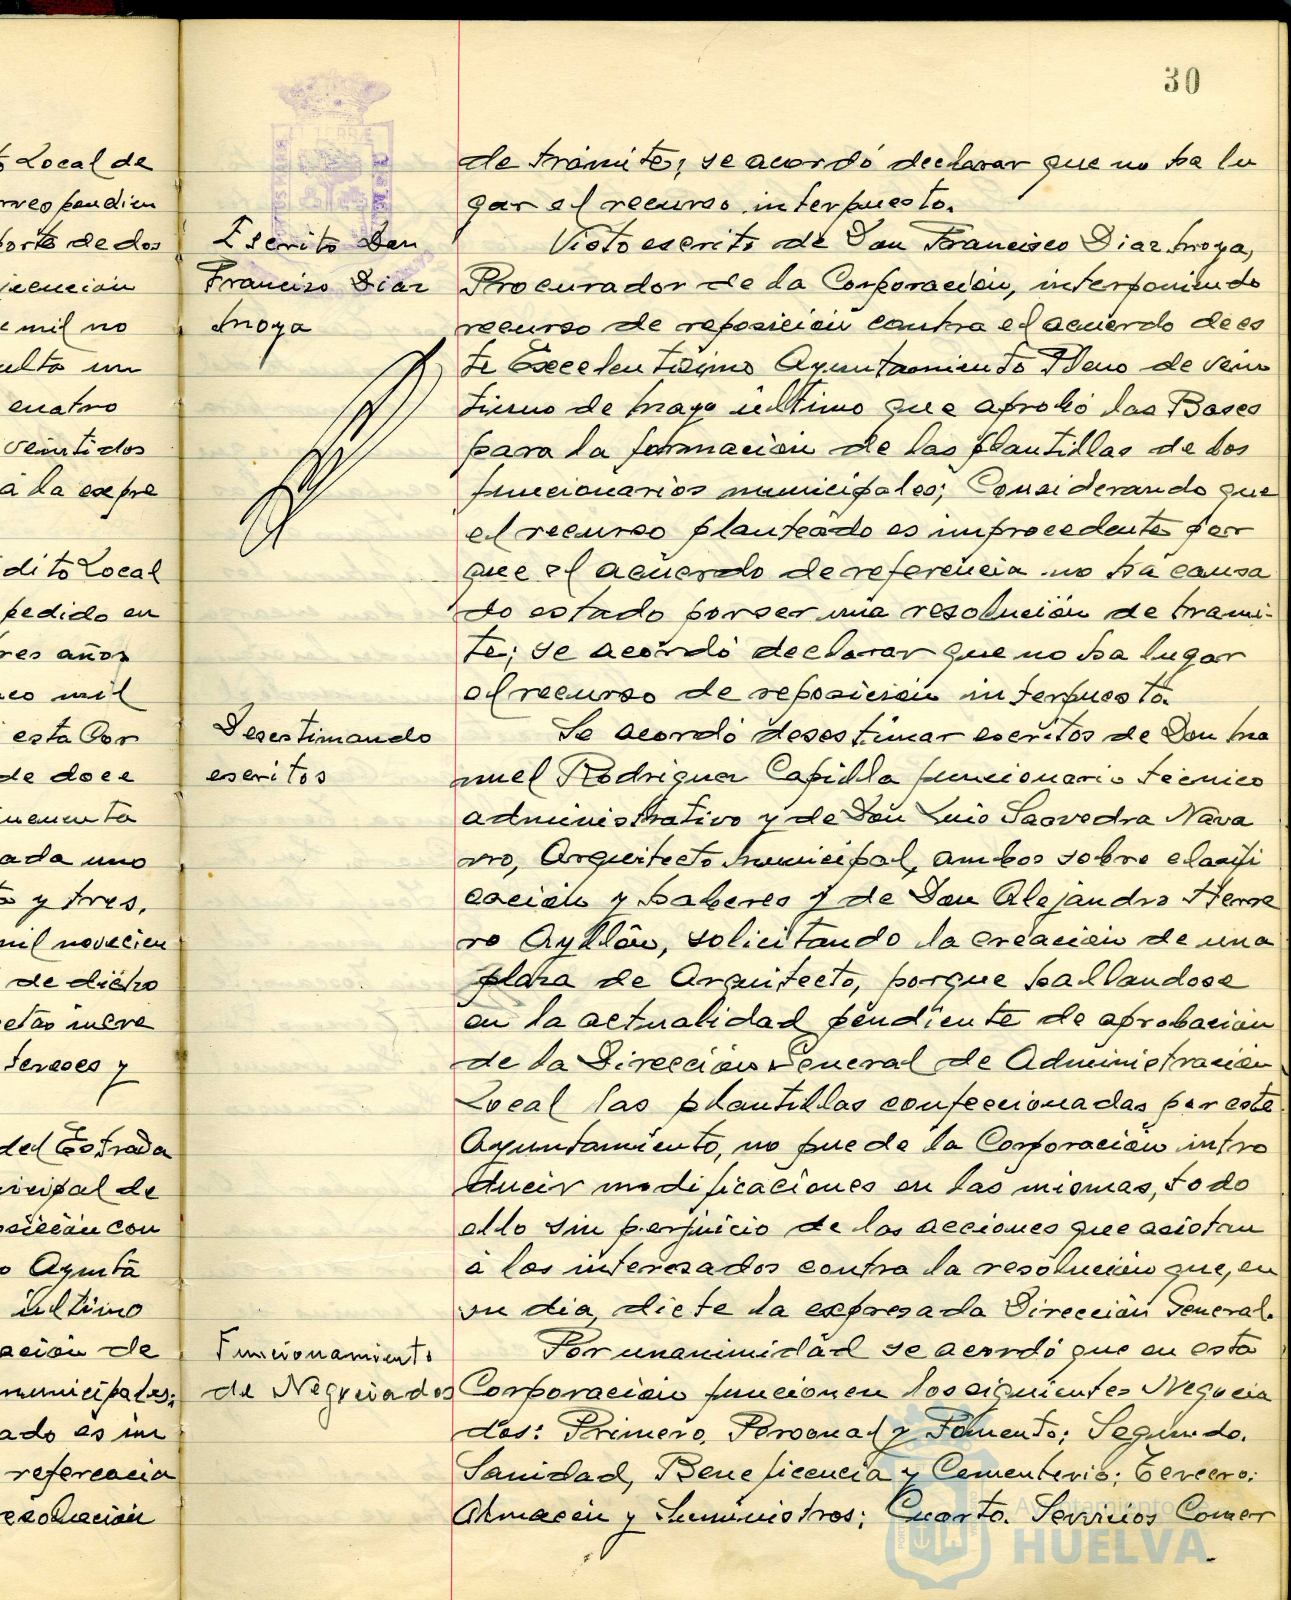 30
to Local de
rrespondien
porte de dos
jecución
e mil no
ulta un
cuatro
veintidos
á la expre
dito Local
pedido en
res años
nco mil
esta Cor
de doce
ncuenta
ada uno
y tres,
mil novecien
de dicho
etas nueve
tereses y
del Estrada
nicipal de
osición con
o Ayunta
último
ación de
municipales;
ado es im
referencia
esolución
Escrito Don
Francisco Diaz
Moya
Desestimando
escritos
Funcionamiento
de Negociados
de trámite; se acordó declarar que no ha lu
gar el recurso interpuesto.
Visto escrito de Don Francisco Diaz Moya,
Procurador de la Corporación, interponiendo
recurso de reposición contra el acuerdo de es
te Excelentísimo Ayuntamiento Pleno de vein
tiuno de Mayo último que aprobó las Bases
para la formación de las plantillas de los
funcionarios municipales; Considerando que
el recurso planteado es improcedente por
que el acuerdo de referencia no ha causa
do estado por ser una resolución de trami-
te; se acordó declarar que no ha lugar
el recurso de reposición interpuesto.
Se acordó desestimar escritos de Don Ma
nuel Rodriguez Capilla funcionario técnico
administrativo y de Don Luis Saavedra Nava
rro, Arquitecto Municipal, ambos sobre clasifi
cación y haberes y de Don Alejandro Herre
ro Ayllón, solicitando la creación de una
plaza de Arquitecto, porque hallandose
en la actualidad pendiente de aprobación
de la Dirección General de Administración
Local las plantillas confeccionadas por este
Ayuntamiento, no puede la Corporación intro
ducir modificaciones en las mismas, todo
ello sin perjuicio de las acciones que asistan
á los interesados contra la resolución que, en
su dia, dicte la expresada Dirección General.
Por unanimidad se acordó que en esta
Corporación funcionen los siguientes Negocia
dos: Primero. Personal y Fomento; Segundo.
Sanidad, Beneficencia y Cementerio; Tercero.
Almacén y Suministros; Cuarto. Servicios Comer
Ayuntamiento de
HUELVA